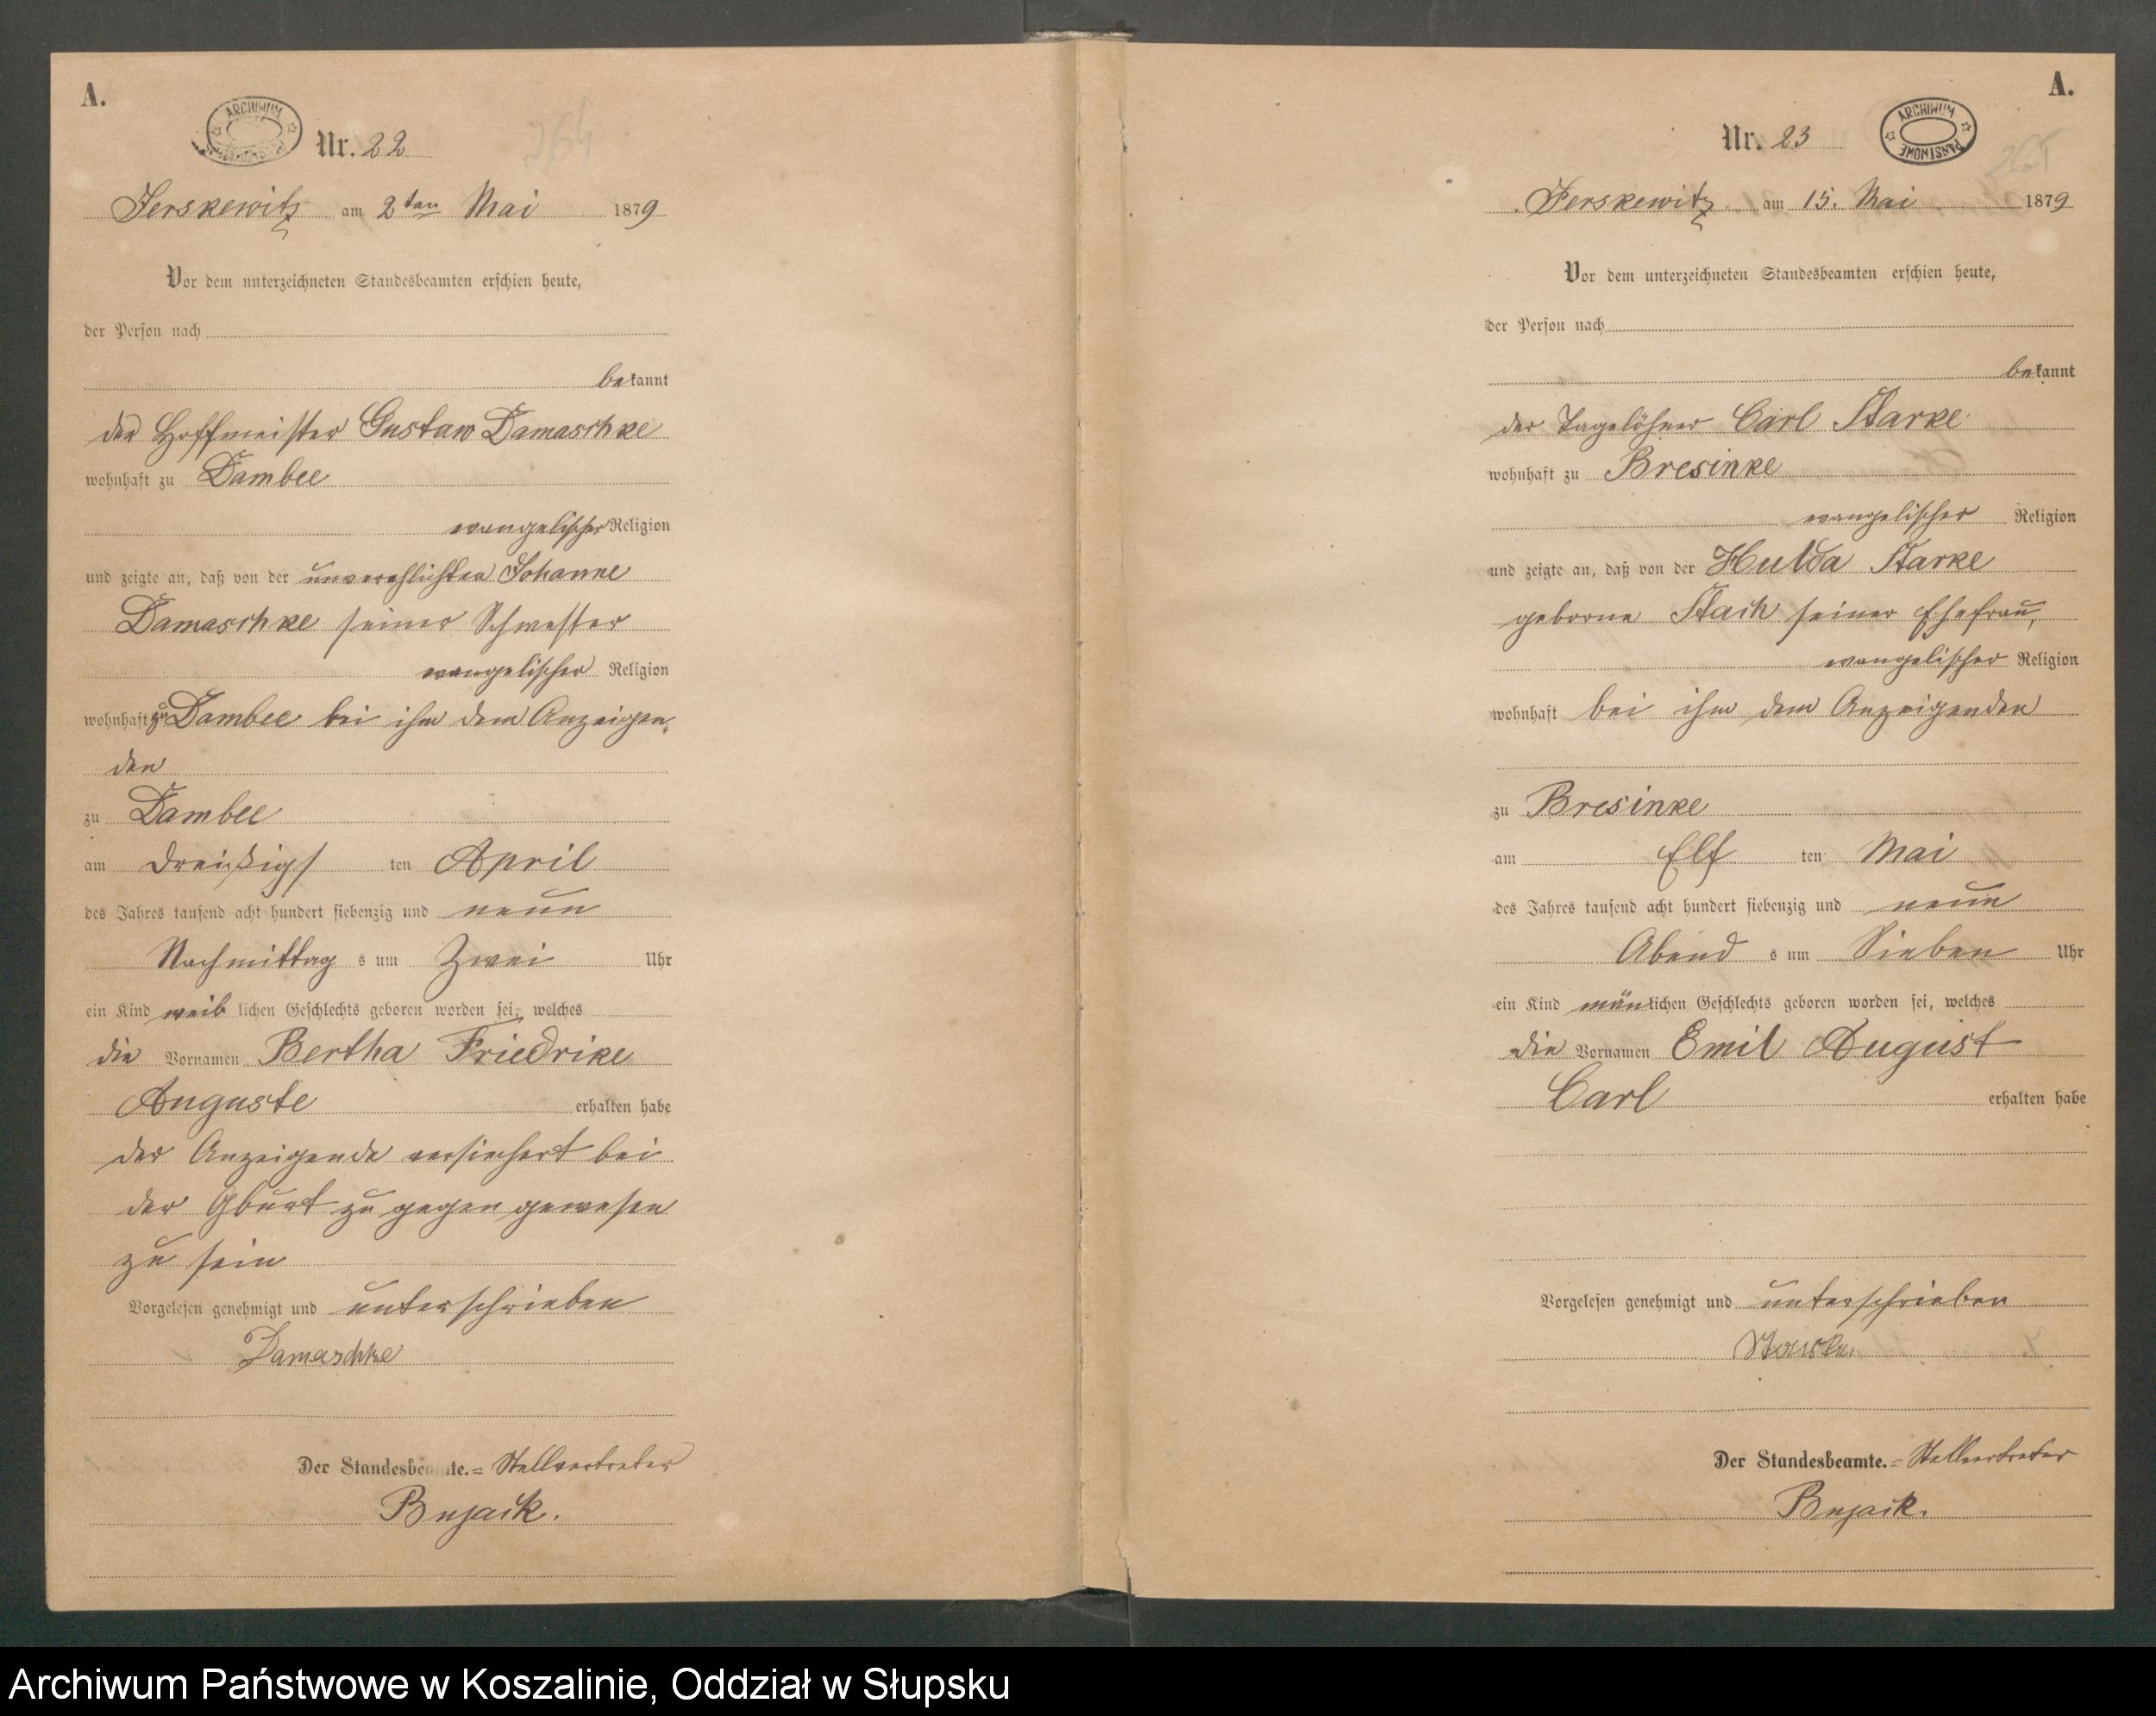 A.
ARCHIWUM
Nr. 22
264
Jerskewitz am 2ten Mai 1879
Vor dem unterzeichneten Standesbeamten erschien heute,
der Person nach
bekannt
der Hoffmeister Gustaw Damaschke
wohnhaft zu Dambee
evangelischer Religion
und zeigte an, daß von der unverehlichten Johanne
Damaschke seiner Schwester
evangelischer Religion
wohnhaft zu Dambee bei ihm dem Anzeigen-
den
zu Dambee
am dreißigs ten April
des Jahres tausend acht hundert siebenzig und neun
Nachmittag s um Zwei Uhr
ein Kind weib lichen Geschlechts geboren worden sei, welches
die Vornamen Bertha Friedrike
Auguste erhalten habe
der Anzeigende versichert bei
der Gburt zu gegen gewesen
zu sein
Vorgelesen genehmigt und unterschrieben
Damaschke
Der Standesbeamte.= Stellvertreter
Bujack.
A.
Nr. 23
ARCHIWUM PAŃSTWOWE
265
Jerskewitz am 15. Mai 1879
Vor dem unterzeichneten Standesbeamten erschien heute,
der Person nach
bekannt
der Tagelöhner Carl Starke
wohnhaft zu Bresinke
evangelischer Religion
und zeigte an, daß von der Hulda Starke
geborne Stach seiner Ehefrau,
evangelischer Religion
wohnhaft bei ihm dem Anzeigenden
zu Bresinke
am Elf ten Mai
des Jahres tausend acht hundert siebenzig und neun
Abend s um Sieben Uhr
ein Kind män lichen Geschlechts geboren worden sei, welches
die Vornamen Emil August
Carl erhalten habe
Vorgelesen genehmigt und unterschrieben
Starke
Der Standesbeamte.= Stellvertreter
Bujack.
Archiwum Państwowe w Koszalinie, Oddział w Słupsku